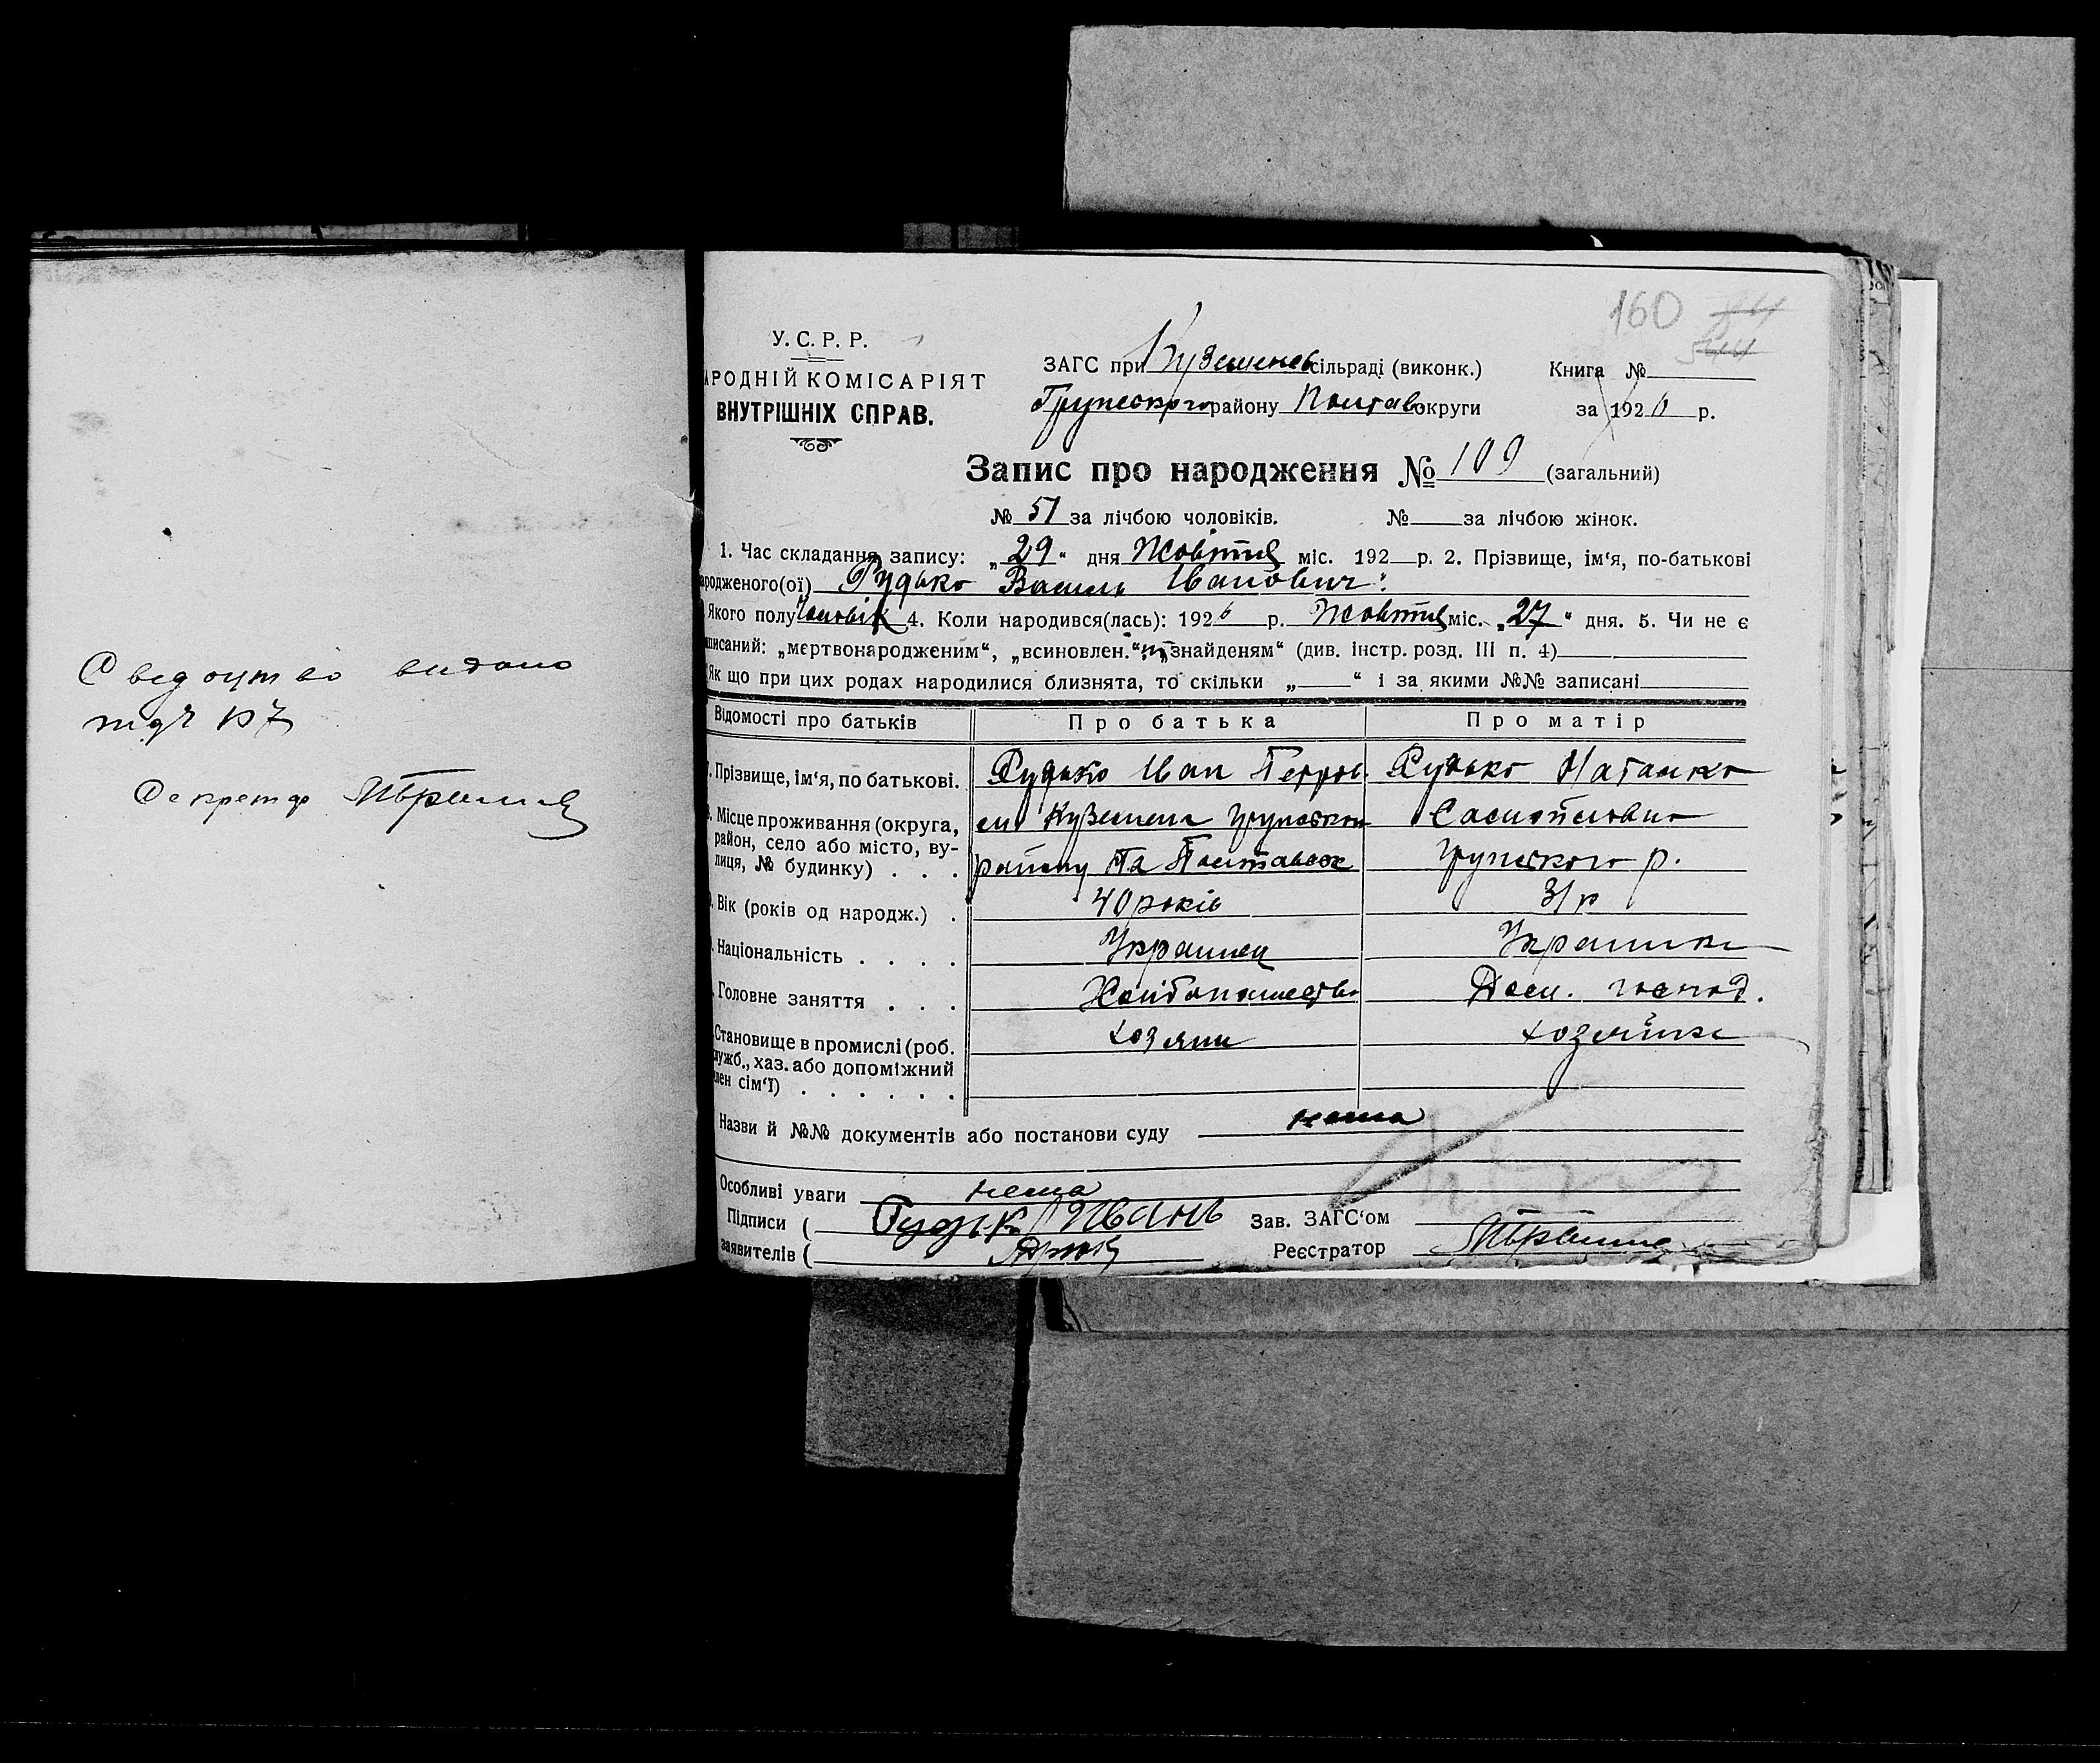 Сведоцтво видано
Секретар
160
У. С. Р. Р.
АРОДНІЙ КОМІСАРІЯТ
ВНУТРІШНІХ СПРАВ.
ЗАГС при Куземенсв сільраді (виконк.)
Книга №
Грунського району Полтав округи
за 1926 р.
Запис про народження № 109 (загальний)
№ 51 за лічбою чоловіків. № за лічбою жінок.
1. Час складання запису: „29“ дня Жовтня міс. 192 р. 2. Прізвище, ім'я, по-батькові
ародженого(ої) Рудько Василь Іванович
Якого полу Чоловік 4. Коли народився(лась): 1926 р. Жовтня міс. „27“ дня. 5. Чи не є
писаний: „мертвонародженим“, „всиновлен.“, „знайденям“ (див. інстр. розд. III п. 4)
Як що при цих родах народилися близнята, то скільки „ “ і за якими №№ записані
Відомості про батьків
Про батька
Про матір
Прізвище, ім'я, по батькові.
Рудько Іван Петров.
Рудько Наталка
Місце проживання (округа,
район, село або місто, ву-
лиця, № будинку) . . .
Куземени Грунського
району Полтавськ
Самойловна
Грунського р.
Вік (років од народж.) .
40 років
31 р
Національність . . . .
Українец
Українка
Головне заняття . . .
Хлібопашество
Дом. господ.
Становище в промислі (роб.
ужб., хаз. або допоміжний
лен сім'ї) . . . . . .
хозяин
хозяйка
Назви й №№ документів або постанови суду нема
Особливі уваги нема
Підписи ( Рудько Ивань
Зав. ЗАГС'ом
заявителів (
Реєстратор